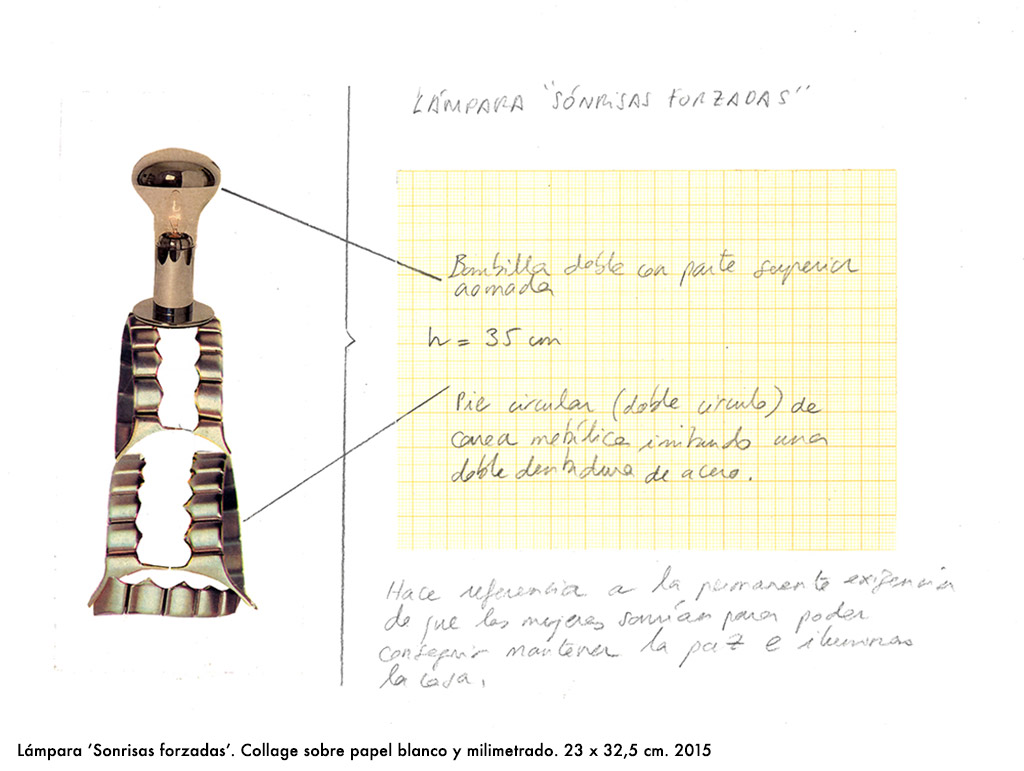 LÁMPARA "SÓNRISAS FORZADAS"
Bombilla doble con parte superior
aomada
h = 35 cm
Pie circular (doble círculo) de
carea metálica imitando una
doble dentadura de acero.
Hace referencia a la permanente exigencia
de que las mujeres sonrían para poder
conseguir mantener la paz e iluminar
la casa.
Lámpara ’Sonrisas forzadas’. Collage sobre papel blanco y milimetrado. 23 x 32,5 cm. 2015